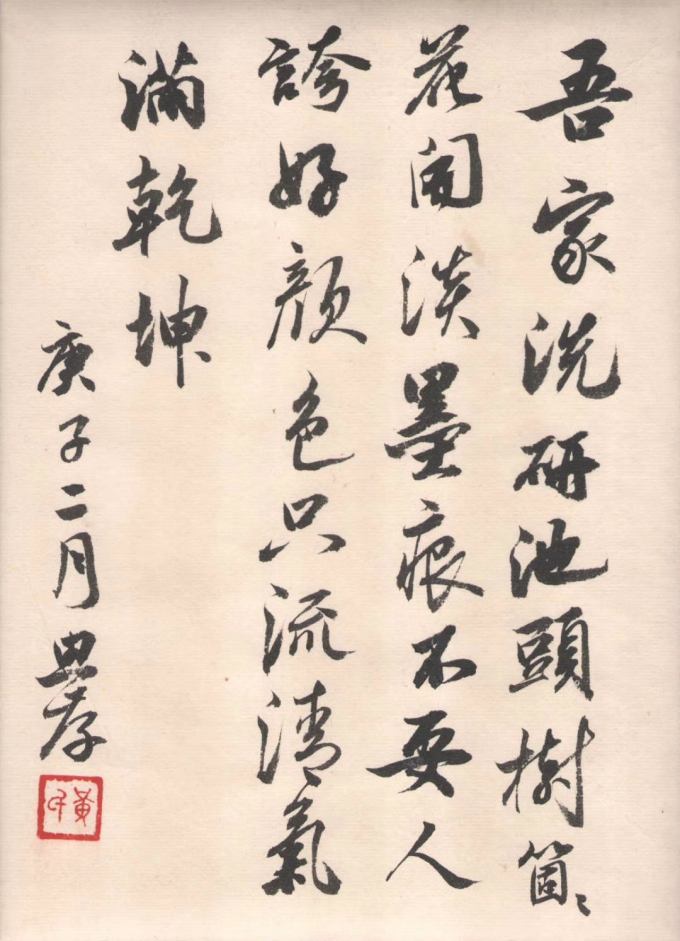 吾家洗研池頭樹箇〻
花開淡墨痕不要人
誇好顏色只流清氣
滿乾坤
庚子二月
黃